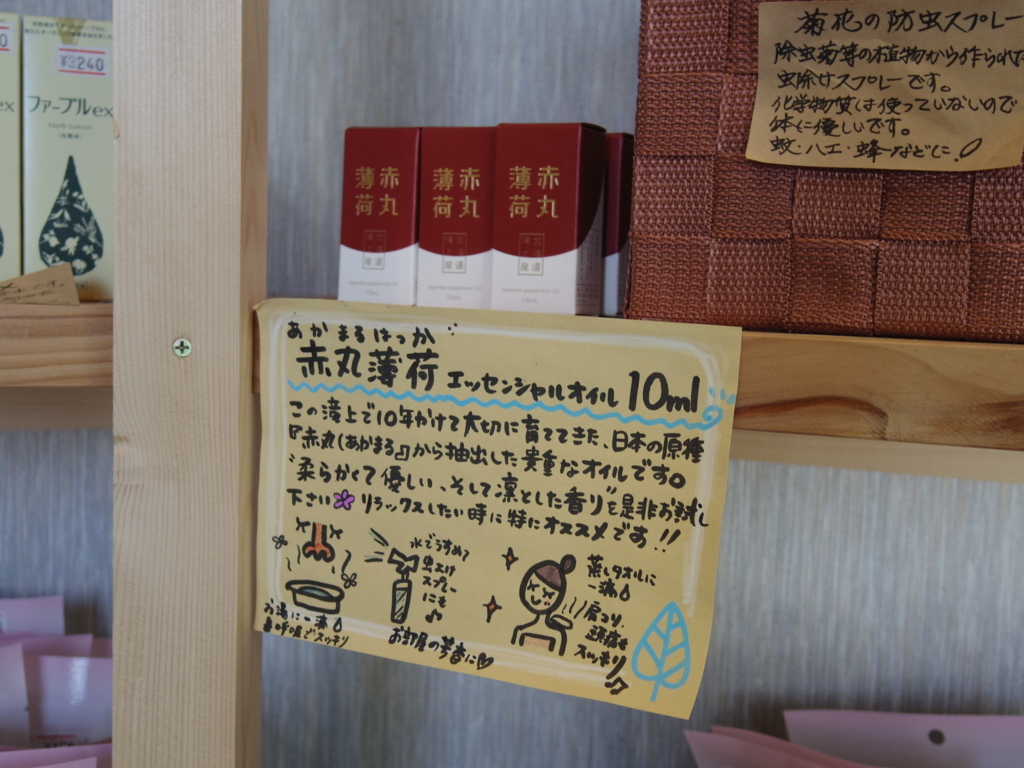 ¥3240
ファーブルex
Herb Lotion
(化粧水)
赤丸
薄荷
Japanese peppermint Oil
10mL
赤丸
薄荷
Japanese peppermint Oil
10mL
赤丸
薄荷
Japanese peppermint Oil
10mL
菊花の防虫スプレー
除虫菊等の植物から作られた
虫除けスプレーです。
化学物質は使っていないので
体に優しいです。
蚊・ハエ・蜂などに!
あかまるはっか
赤丸薄荷 エッセンシャルオイル 10ml
この滝上で10年かけて大切に育ててきた、日本の原種
『赤丸(あかまる)』から抽出した貴重なオイルです。
"柔らかくて優しい、そして凛とした香り"を是非お試し
下さい リラックスしたい時に特にオススメです!!
お湯に一滴
鼻呼吸でスッキリ
水でうすめて
虫よけ
スプレー
にも♪
お部屋の芳香に♡
蒸しタオルに
一滴
肩こり
頭痛も
スッキリ♪